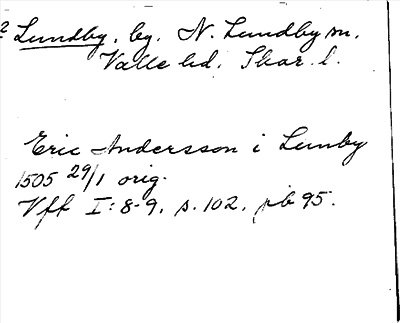 2 Lundby, by, N. Lundby sn,
Valle hd, Skar. l.
Eric Andersson i Lunby
1505 29/1 orig.
Vff I: 8-9, s. 102, pb 95.